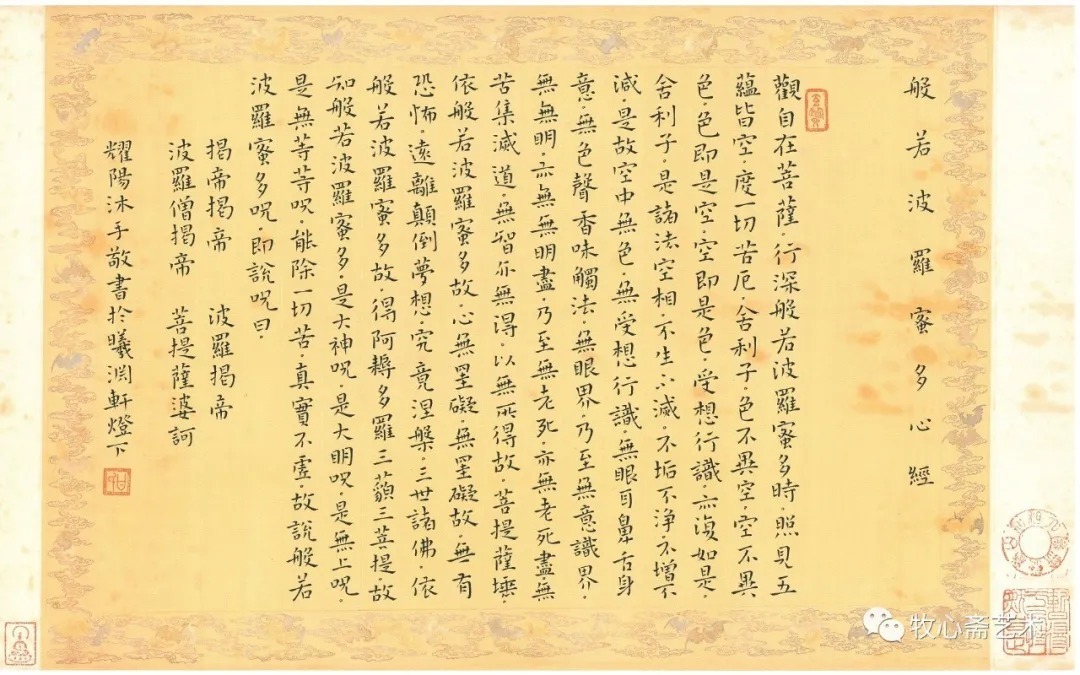 般若波羅蜜多心經
觀自在菩薩·行深般若波羅蜜多時·照見五
蘊皆空·度一切苦厄·舍利子·色不異空·空不異
色·色即是空·空即是色·受想行識·亦復如是·
舍利子·是諸法空相·不生不滅·不垢不淨·不增不
減·是故空中無色·無受想行識·無眼耳鼻舌身
意·無色聲香味觸法·無眼界·乃至無意識界·
無無明·亦無無明盡·乃至無老死·亦無老死盡·無
苦集滅道·無智亦無得·以無所得故·菩提薩埵·
依般若波羅蜜多故·心無罣礙·無罣礙故·無有
恐怖·遠離顛倒夢想·究竟涅槃·三世諸佛·依
般若波羅蜜多故·得阿耨多羅三藐三菩提·故
知般若波羅蜜多·是大神呪·是大明呪·是無上呪·
是無等等呪·能除一切苦·真實不虛·故說般若
波羅蜜多呪·即說呪曰·
揭帝揭帝 波羅揭帝
波羅僧揭帝 菩提薩婆訶
耀陽沐手敬書於曦淵軒燈下
牧心斋艺术